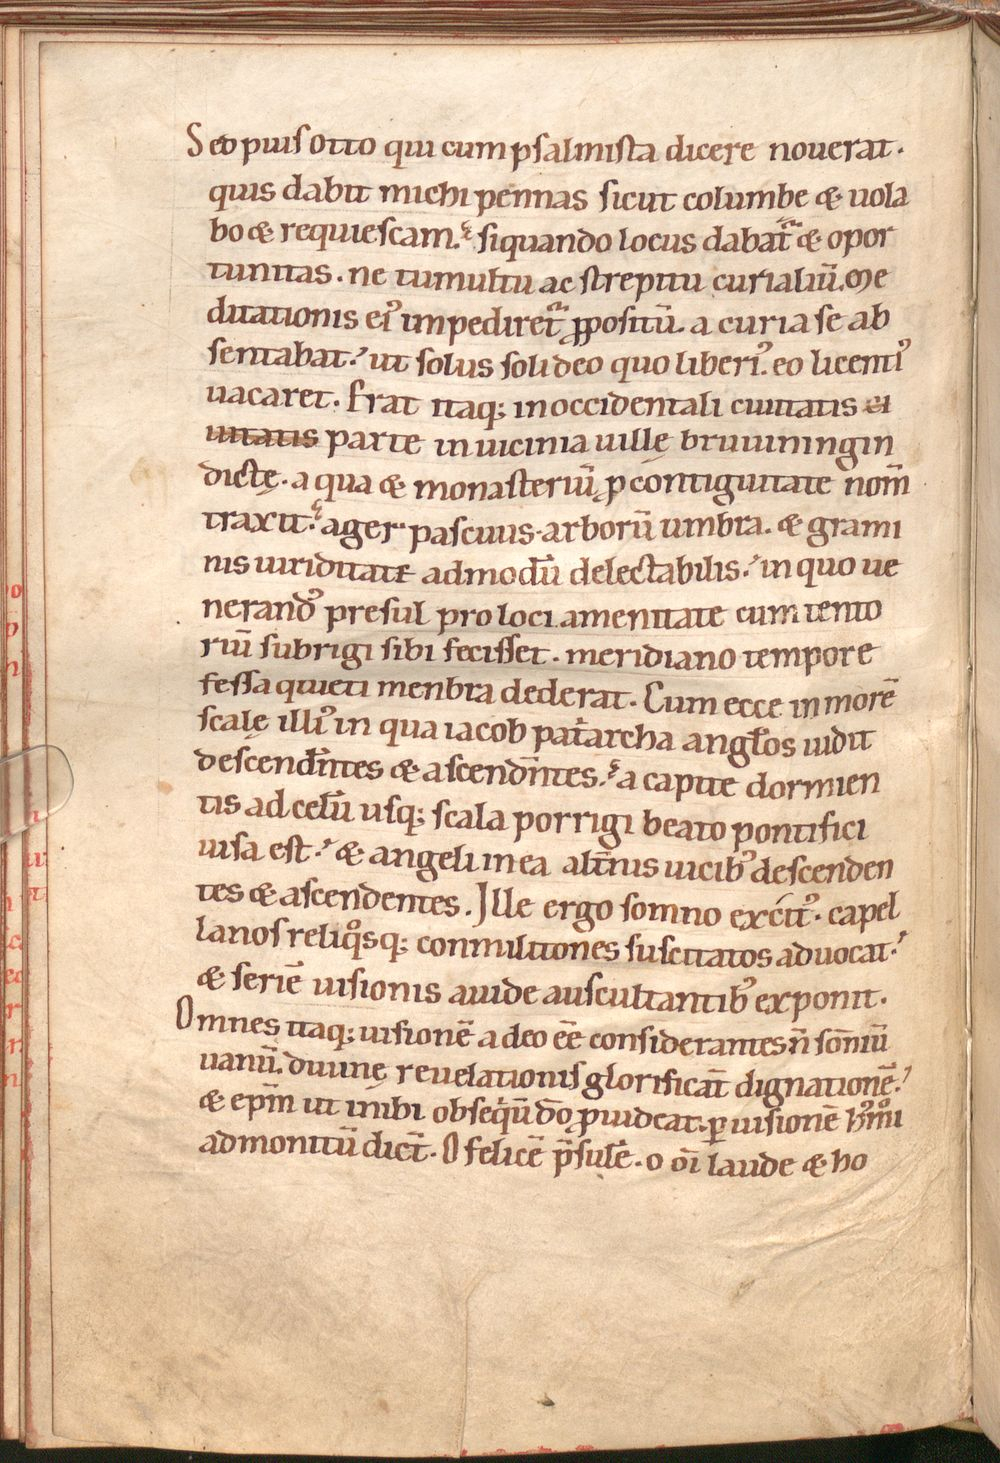 Sed pius otto qui cum psalmista dicere nouerat.
quis dabit michi pennas sicut columbe & uola
bo & requiescam. siquando locus dabat᷑ & opor
tunitas. ne tumultu ac strepitu curialiū. me
ditationis eiꝰ impediret᷑ ꝓpositū. a curia se ab
sentabat. ut solus soli deo quo liberiꝰ. eo licentiꝰ
uacaret. Erat itaq; in occidentali ciuitatis ci
uitatis parte in uicinia uillę bruuiningin
dictę. a qua & monasteriū ꝓ contiguitate nom̅
traxit. ager pascuus. arborū umbra. & grami
nis uiriditate admodū delectabilis. in quo ue
nerandꝰ presul pro loci amenitate cum tento
riū subrigi sibi fecisset. meridiano tempore
fessa quieti menbra dederat. Cum ecce in morē
scalę illiꝰ in qua iacob pat̅archa angl̅os uidit
descend̅ntes & ascend̅ntes. a capite dormien
tis ad celū usq; scala porrigi beato pontifici
uisa est. & angeli in ea alt̅nis uicibꝰ descenden
tes & ascendentes. Ille ergo somno excitꝰ. capel
lanos reliqͦsq; conmilitiones suscitatos aduocat.
& seriē uisionis auide auscultantibꝰ exponit.
Omnes itaq; uisionē a deo ēe considerantes n̅ som̅iū
uanū. diuinę reuelationis glorificat̅ dignationē.
& ep̅m ut inibi obseqͥū do̅ ꝓuideat. ꝑ uisionē hꝰmͦi
admonitū dict̅. O felicē p̅sulē. o oi̅ laude & ho